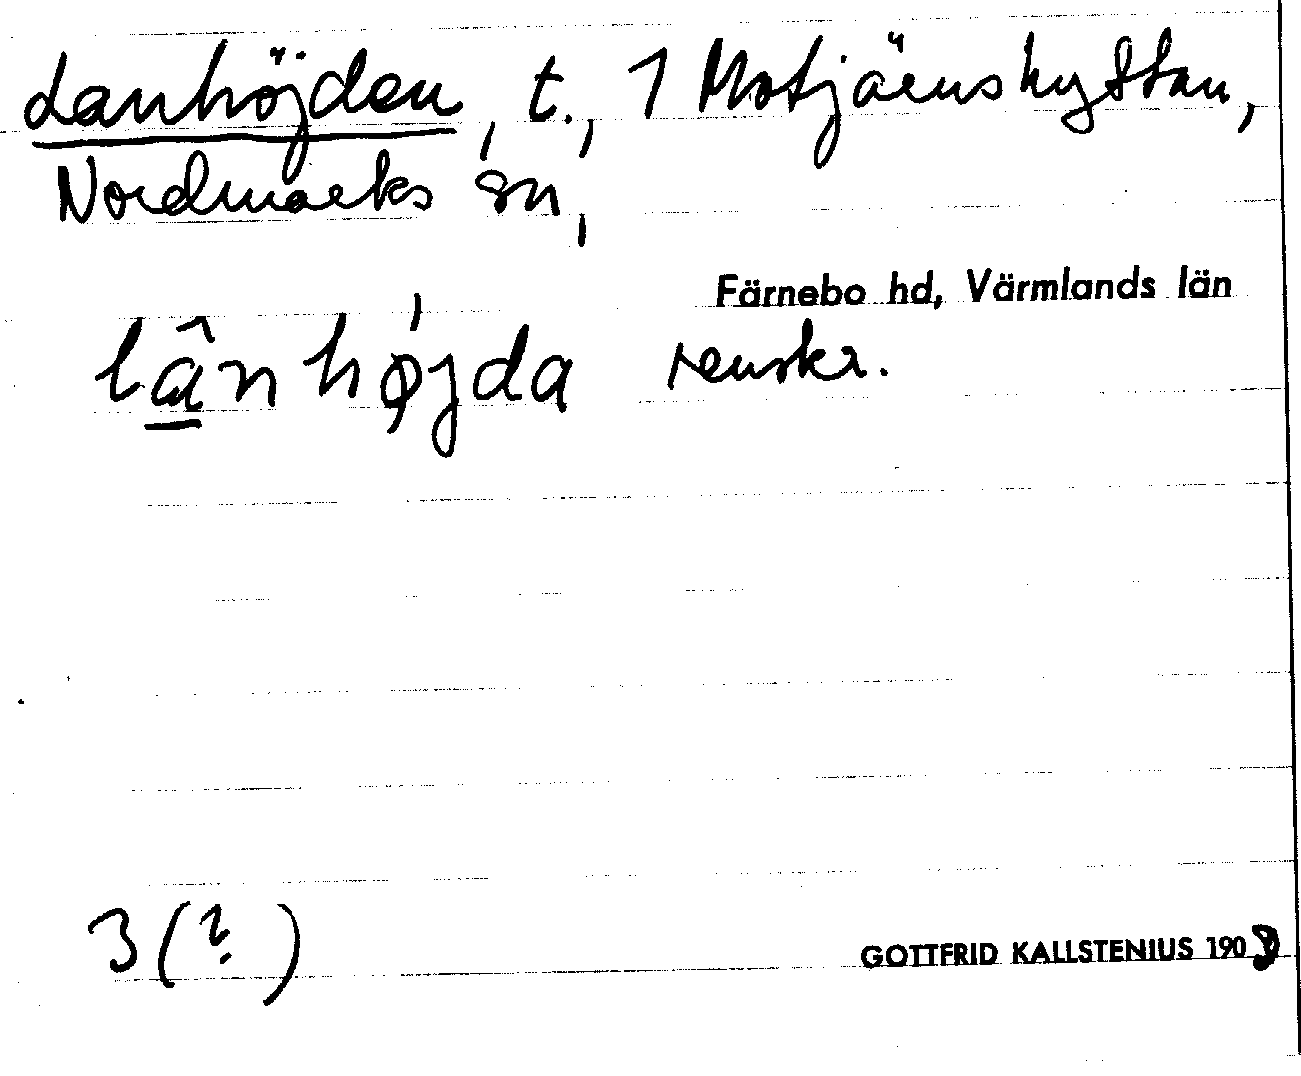 Lanhöjden, t., 1 Motjärnshyttan,
Nordmarks sn,
Färnebo hd, Värmlands län
lân hø̍jda renskr.
3 (?)
GOTTFRID KALLSTENIUS 1908